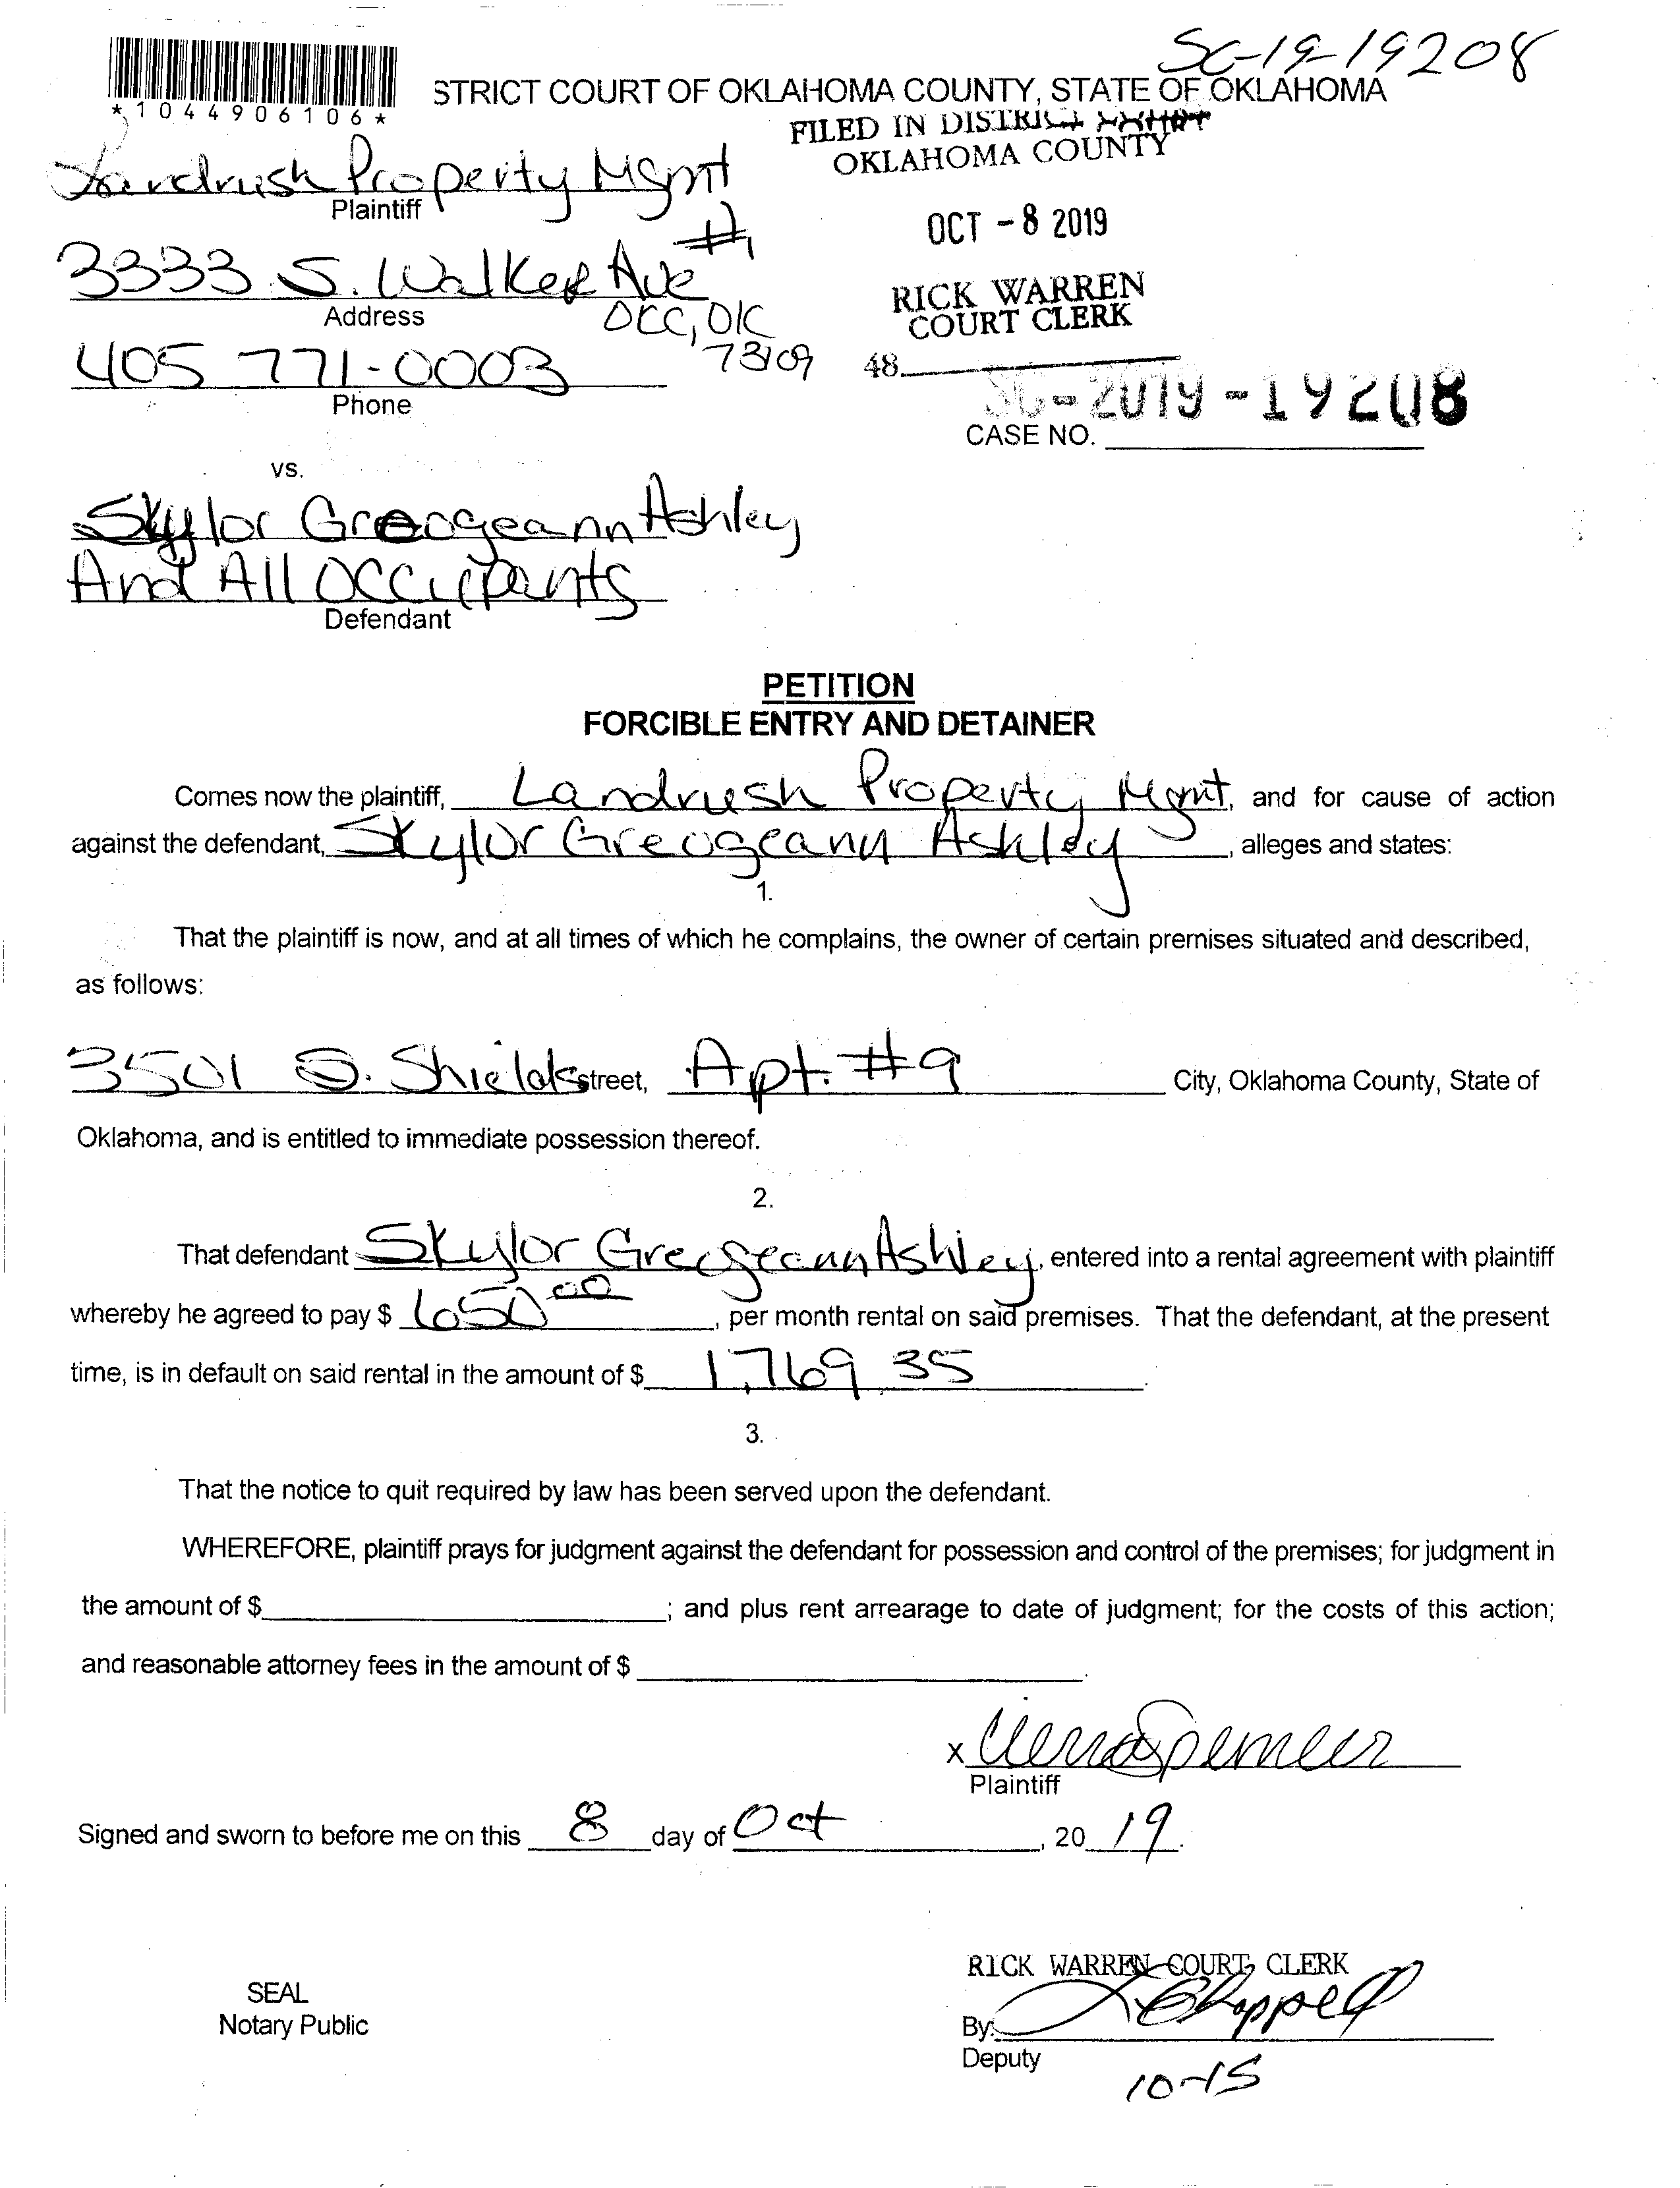 SC-19-19208
*1044906106*
STRICT COURT OF OKLAHOMA COUNTY, STATE OF OKLAHOMA
FILED IN DISTRICT COURT
OKLAHOMA COUNTY
Landrush Property Mgmt
Plaintiff
OCT - 8 2019
3333 S. Walker Ave #1
Address
OCC, OK
73109
RICK WARREN
COURT CLERK
405 771-0003
Phone
48
SC-2019-19208
CASE NO.
vs.
Skylor Greogeann Ashley
And All Occupants
Defendant
PETITION
FORCIBLE ENTRY AND DETAINER
Comes now the plaintiff, Landrush Property Mgmt, and for cause of action
against the defendant, Skylor Greogeann Ashley, alleges and states:
1.
That the plaintiff is now, and at all times of which he complains, the owner of certain premises situated and described,
as follows:
3501 S. Shields street, Apt. #9 City, Oklahoma County, State of
Oklahoma, and is entitled to immediate possession thereof.
2.
That defendant Skylor Greogeann Ashley, entered into a rental agreement with plaintiff
whereby he agreed to pay $ 650 00, per month rental on said premises. That the defendant, at the present
time, is in default on said rental in the amount of $ 1,769.35.
3.
That the notice to quit required by law has been served upon the defendant.
WHEREFORE, plaintiff prays for judgment against the defendant for possession and control of the premises; for judgment in
the amount of $ ; and plus rent arrearage to date of judgment; for the costs of this action;
and reasonable attorney fees in the amount of $ .
x
Plaintiff
Signed and sworn to before me on this 8 day of Oct, 20 19.
RICK WARREN COURT CLERK
SEAL
Notary Public
By: Chappell
Deputy
10-15